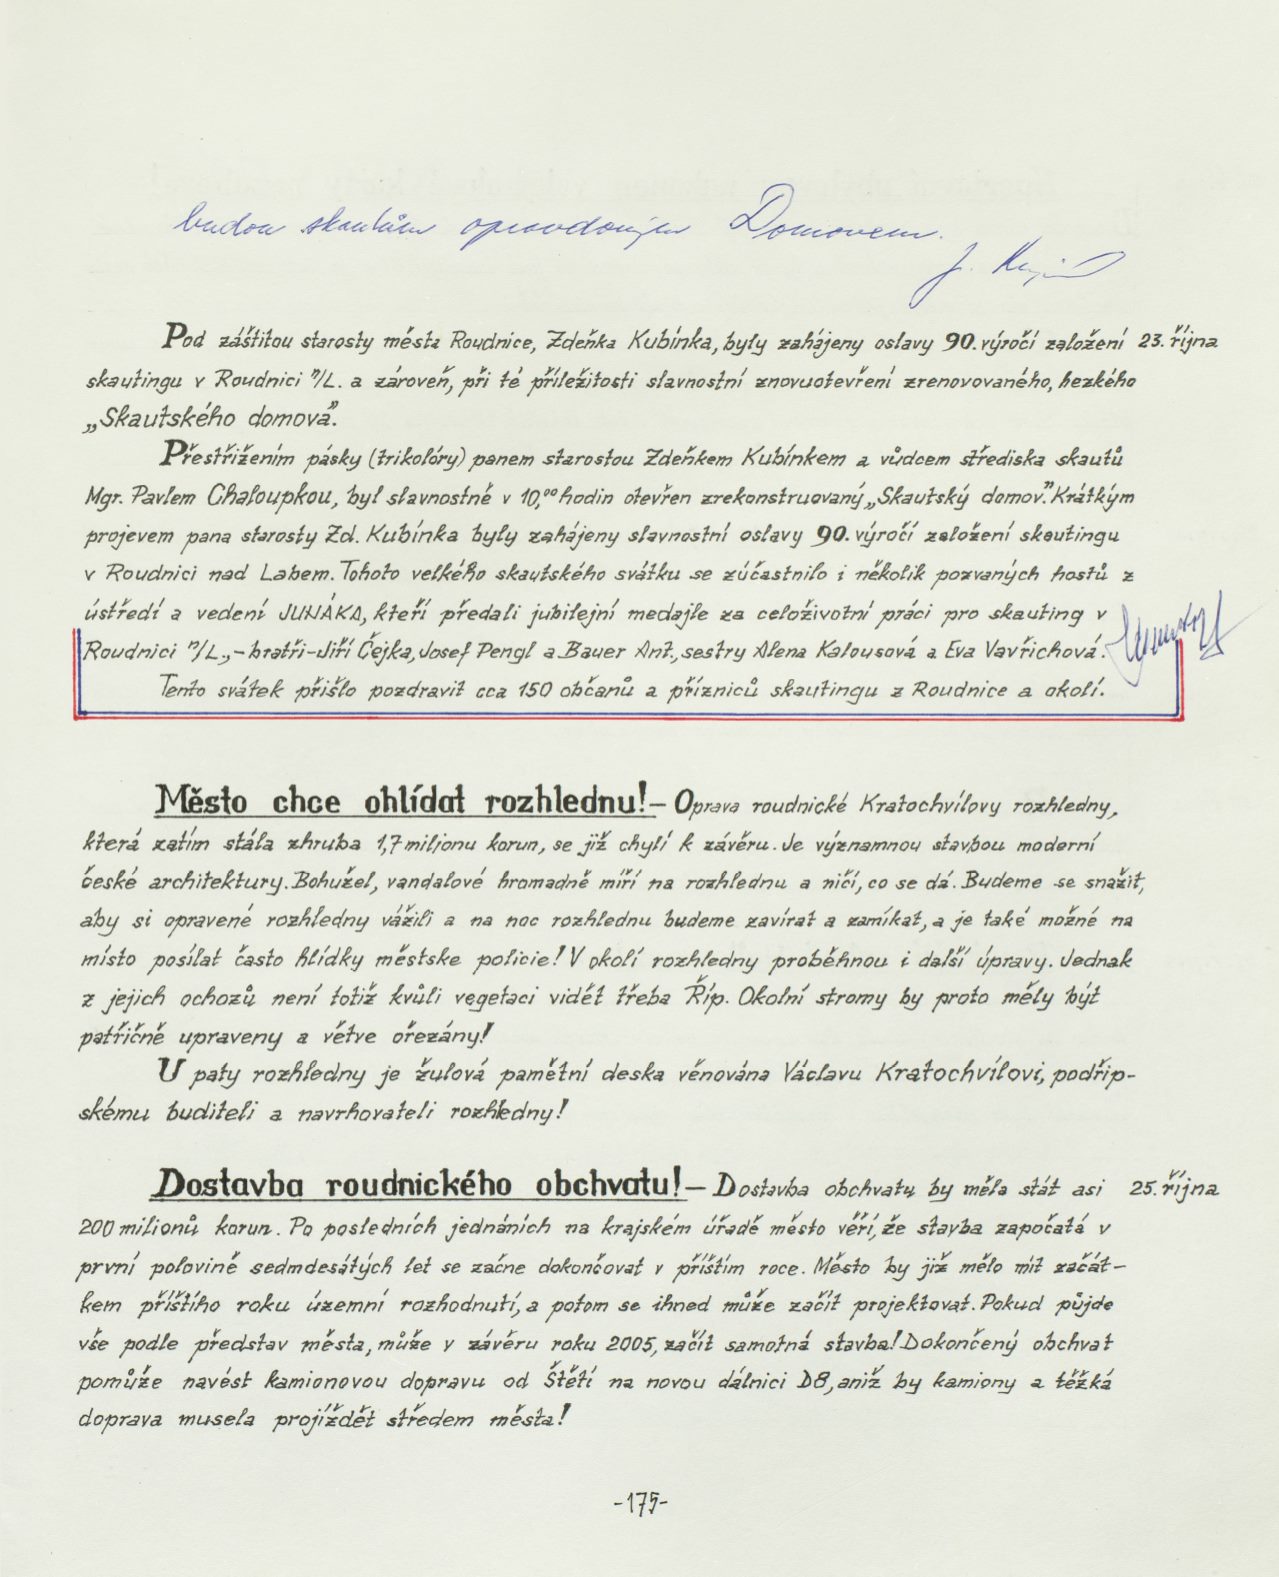 budou skautům opravdovým Domovem.
J.
Pod záštitou starosty města Roudnice, Zdeňka Kubínka, byly zahájeny oslavy 90. výročí založení 23. října
skautingu v Roudnici n/L. a zároveň, při té příležitosti slavnostní znovuotevření zrenovovaného, hezkého
„Skautského domova”.
Přestřižením pásky (trikolóry) panem starostou Zdeňkem Kubínkem a vůdcem střediska skautů
Mgr. Pavlem Chaloupkou, byl slavnostně v 10,00 hodin otevřen zrekonstruovaný „Skautský domov”. Krátkým
projevem pana starosty Zd. Kubínka byly zahájeny slavnostní oslavy 90. výročí založení skautingu
v Roudnici nad Labem. Tohoto velkého skautského svátku se zúčastnilo i několik pozvaných hostů z
ústředí a vedení JUNÁKA, kteří předali jubilejní medajle za celoživotní práci pro skauting v
Roudnici n/L„ – bratři – Jiří Čejka, Josef Pengl a Bauer Ant., sestry Alena Kalousová a Eva Vavřichová.
Tento svátek přišlo pozdravit cca 150 občanů a příznivců skautingu z Roudnice a okolí.
Město chce ohlídat rozhlednu! – Oprava roudnické Kratochvílovy rozhledny,
která zatím stála zhruba 1,7 milionu korun, se již chýlí k závěru. Je významnou stavbou moderní
české architektury. Bohužel, vandalové hromadně míří na rozhlednu a ničí, co se dá. Budeme se snažit,
aby si opravené rozhledny vážili a na noc rozhlednu budeme zavírat a zamíkat, a je také možné na
místo posílat často hlídky městske policie! V okolí rozhledny proběhnou i další úpravy. Jednak
z jejich ochozů není totiž kvůli vegetaci vidět třeba Říp. Okolní stromy by proto měly být
patřičně upraveny a větve ořezány!
U paty rozhledny je žulová pamětní deska věnována Václavu Kratochvílovi, podřip-
skému buditeli a navrhovateli rozhledny!
Dostavba roudnického obchvatu! – Dostavba obchvatu by měla stát asi 25. října
200 milionů korun. Po posledních jednáních na krajském úřadě město věří, že stavba započatá v
první polovině sedmdesátých let se začne dokončovat v příštím roce. Město by již mělo mít začát-
kem příštího roku územní rozhodnutí, a potom se ihned může začít projektovat. Pokud půjde
vše podle představ města, může v závěru roku 2005, začít samotná stavba! Dokončený obchvat
pomůže navést kamionovou dopravu od Štětí na novou dálnici D8, aniž by kamiony a těžká
doprava musela projíždět středem města!
-175-